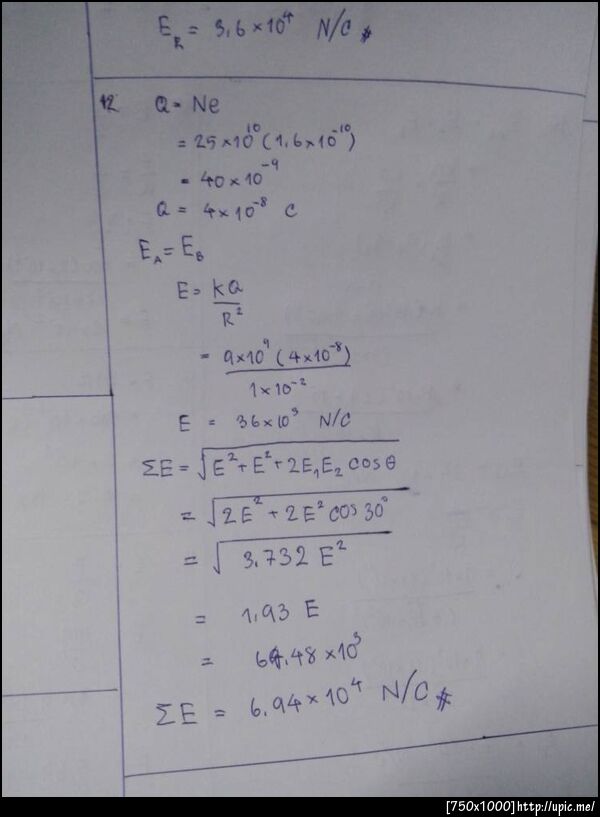 E_R = 3,6×10⁴ N/C #
12 Q = Ne
= 25×10¹⁰ (1,6×10⁻¹⁰)
= 40×10⁻⁹
Q = 4×10⁻⁸ C
E_A = E_B
E = KQ / R²
= 9×10⁹ (4×10⁻⁸) / 1×10⁻²
E = 36×10³ N/C
ΣE = √(E² + E² + 2E₁E₂ cos θ)
= √(2E² + 2E² cos 30°)
= √(3,732 E²)
= 1,93 E
= 69.48×10³
ΣE = 6.94×10⁴ N/C #
[750x1000] http://upic.me/